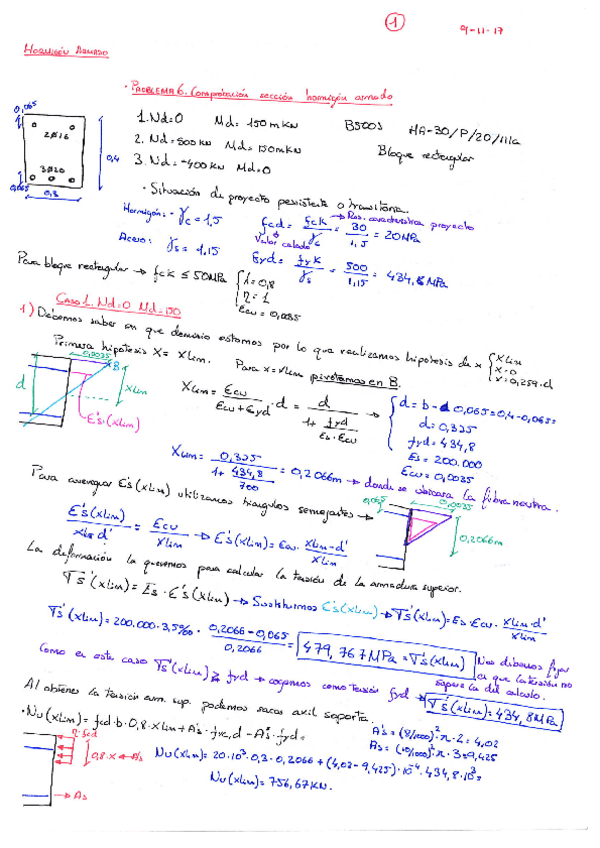 1
9-11-17
HORMIGÓN ARMADO
· PROBLEMA 6. Comprobación sección hormigón armado
0,065
2Ø16
0,4
3Ø20
0,065
0,3
1. Nd=0 Md= 150 mKN B500S HA-30/P/20/IIIa
2. Nd=500 KN Md=150mKN Bloque rectangular
3. Nd=-400KN Md=0
· Situación de proyecto persistente o transitoria.
Hormigón: · γc = 1,5 fcd = fck/γc = 30/1,5 = 20MPa
→ Res. característica proyecto
Valor calculo
Acero: γs = 1,15 fyd = fyk/γs = 500/1,15 = 434,8 MPa
Para bloque rectangular → fck ≤ 50MPa { λ=0,8
η=1
Ecu = 0,0035
Caso 1. Nd=0 Md=150
1) Debemos saber en que dominio estamos por lo que realizamos hipotesis de x { xlim
x=0
x=0,259·d
Primera hipótesis X= Xlim. Para x=xlim pivotamos en B.
0,0035
B
d
Xlim
E's(xlim)
Xlim = Ecu/(Ecu+Eyd) · d = d/(1+ fyd/(Es·Ecu)) → { d = b-d 0,065=0,4-0,065=
d=0,335
fyd=434,8
Es=200.000
Ecu=0,0035
Xlim = 0,335/(1+ 434,8/700) = 0,2066m → donde se ubicara la fibra neutra.
Para averiguar E's(xlim) utilizamos triangulos semejantes →
0,065
0,0035
0,2066m
E's(xlim)/(xlim-d') = Ecu/xlim → E's(xlim)= Ecu· (xlim-d')/xlim
La deformación la queremos para calcular la tensión de la armadura superior.
σs'(xlim) = Es · E's(xlim) → Sustituimos E's(xlim) → σs'(xlim)=Es·Ecu· (xlim-d')/xlim
σs'(xlim) = 200.000·3,5‰ · (0,2066-0,065)/0,2066 = 479,767 MPa = σs'(xlim)
Nos debemos fijar en que la tensión no supere la del calculo.
Como en este caso σs'(xlim) ≥ fyd → cogemos como tensión fyd → σs'(xlim)=434,8MPa
Al obtener la tensión arm. sup. podemos sacar axil soporta.
·Nu(xlim) = fcd·b·0,8·xlim+A's·fyc,d - As·fyd=
A's = (8/1000)²·π·2 = 4,02
As = (10/1000)²·π·3=9,425
η·fcd
0,8·x
A's
As
Nu(xlim)= 20·10³·0,3·0,2066 + (4,02-9,425)·10⁻⁴·434,8·10³=
Nu(xlim)= 756,67KN.